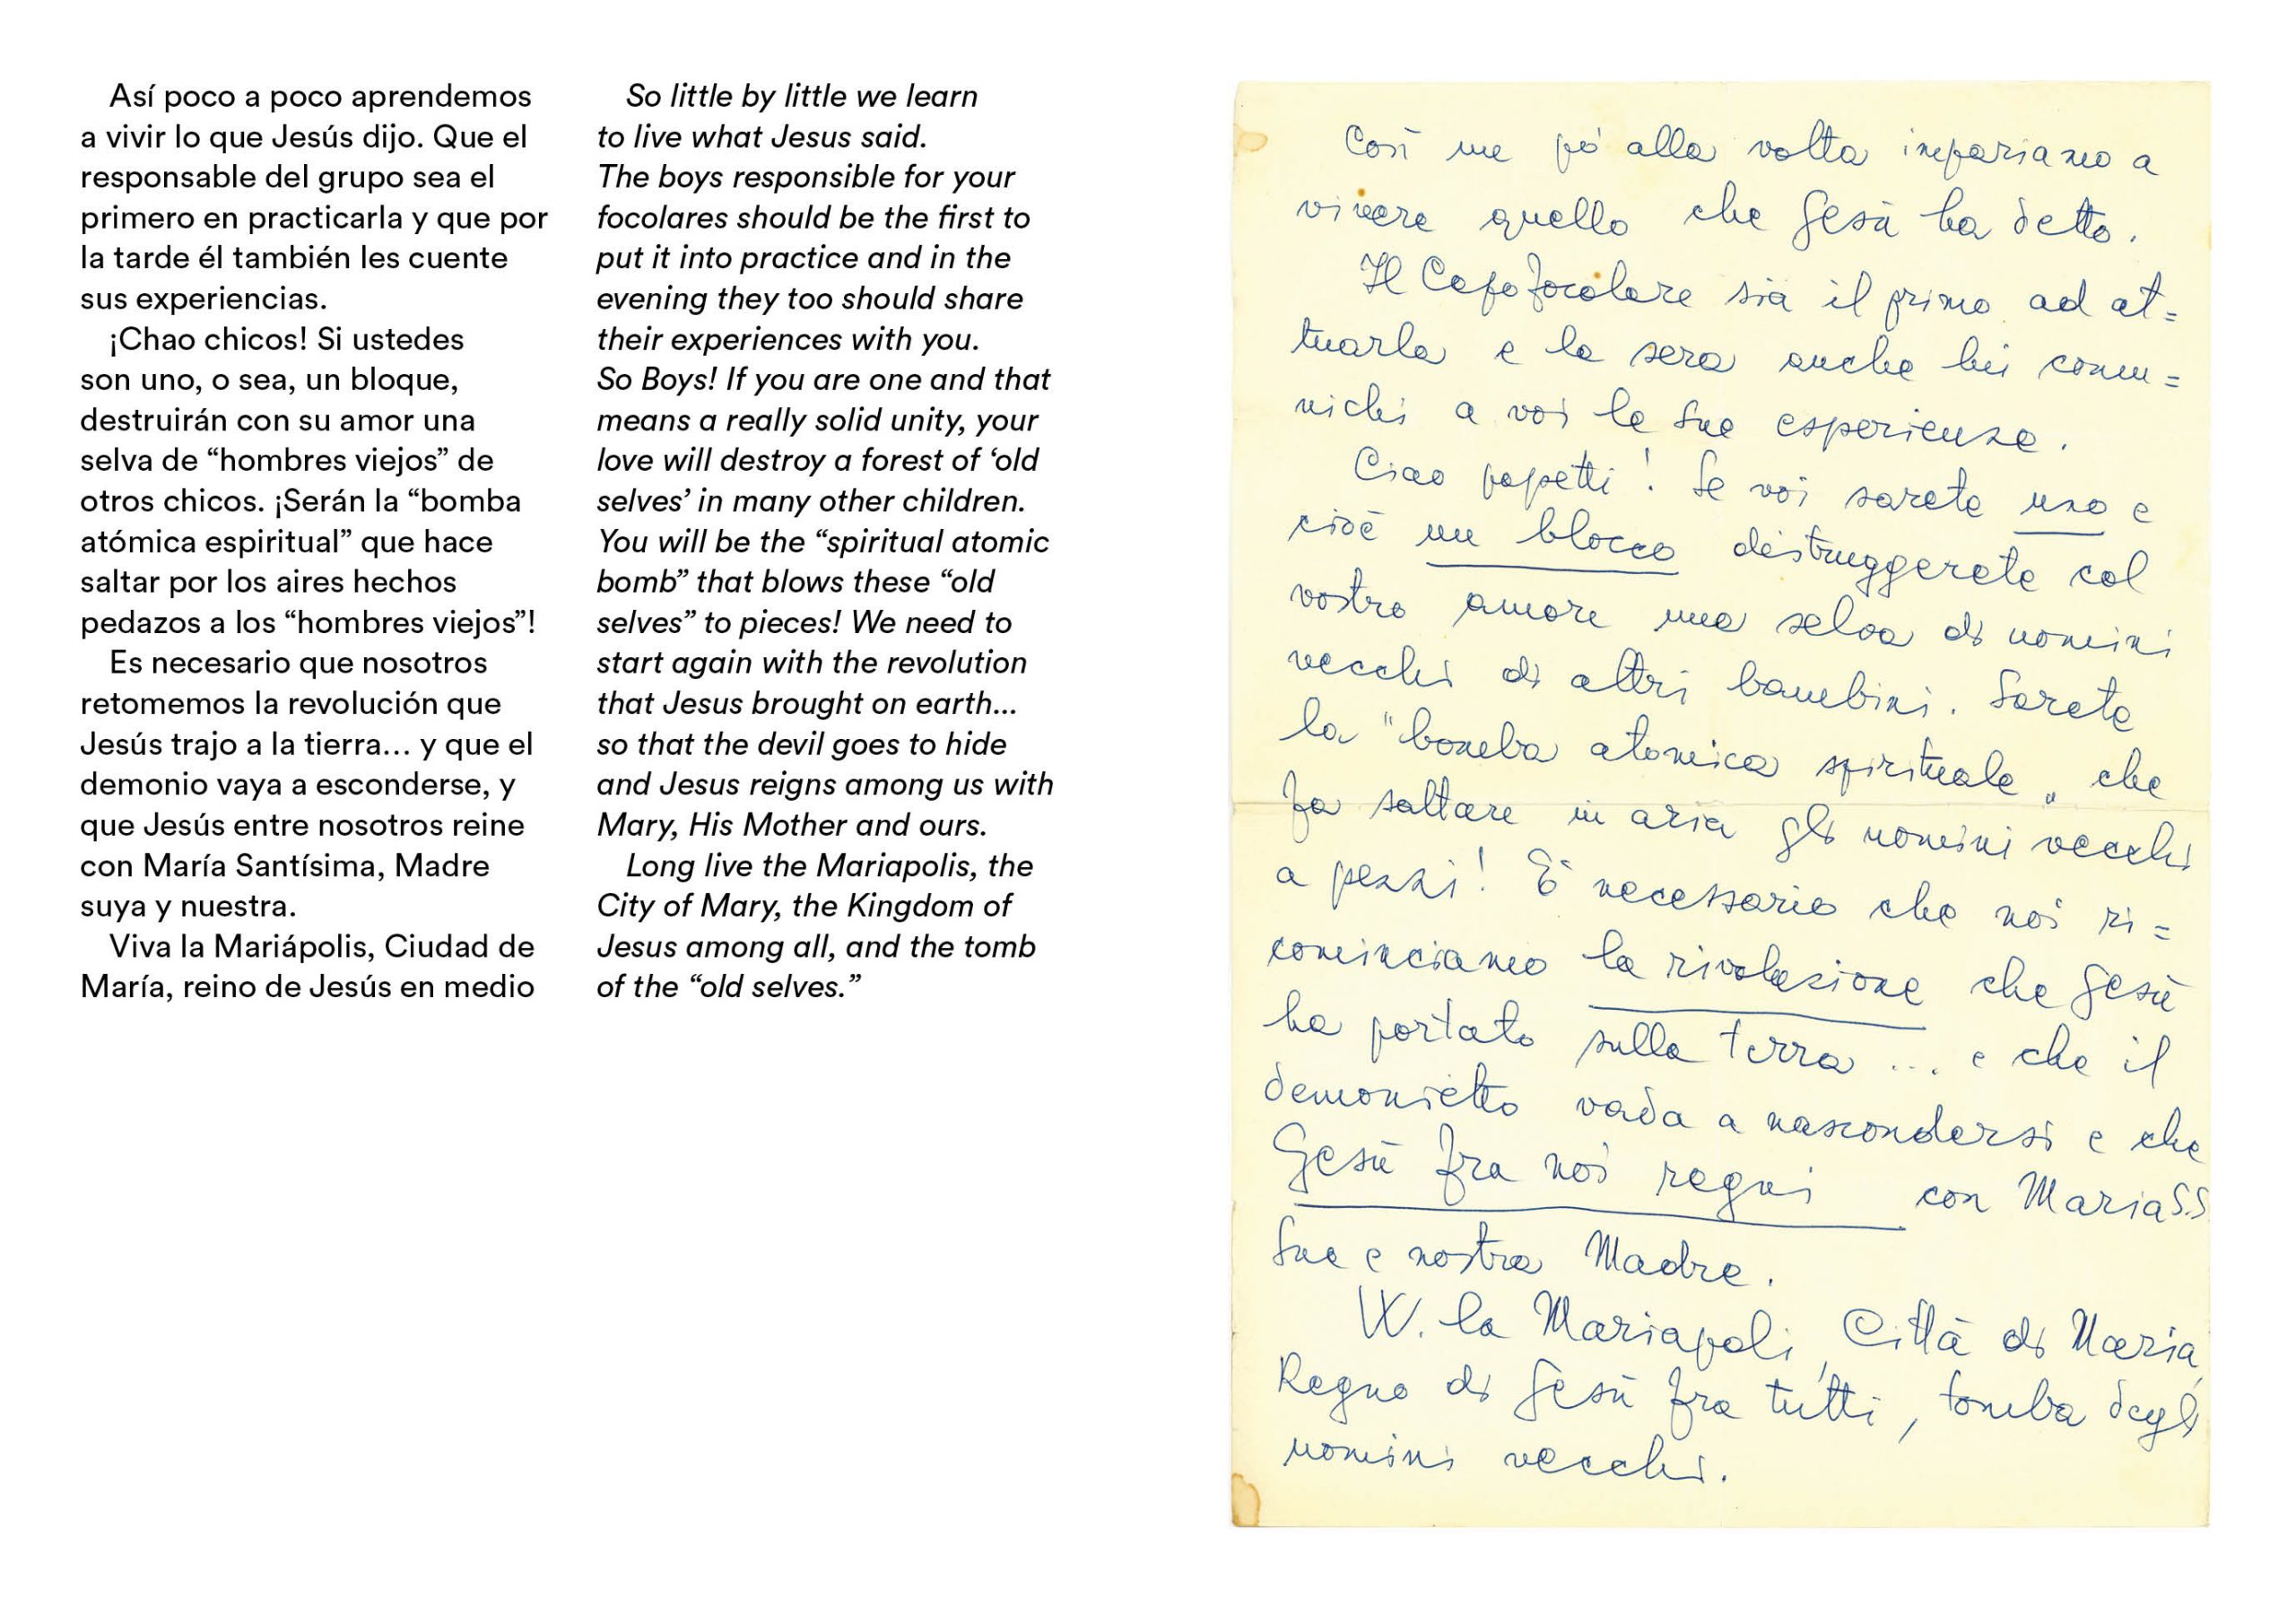 Así poco a poco aprendemos
a vivir lo que Jesús dijo. Que el
responsable del grupo sea el
primero en practicarla y que por
la tarde él también les cuente
sus experiencias.
¡Chao chicos! Si ustedes
son uno, o sea, un bloque,
destruirán con su amor una
selva de “hombres viejos” de
otros chicos. ¡Serán la “bomba
atómica espiritual” que hace
saltar por los aires hechos
pedazos a los “hombres viejos”!
Es necesario que nosotros
retomemos la revolución que
Jesús trajo a la tierra... y que el
demonio vaya a esconderse, y
que Jesús entre nosotros reine
con María Santísima, Madre
suya y nuestra.
Viva la Mariápolis, Ciudad de
María, reino de Jesús en medio
So little by little we learn
to live what Jesus said.
The boys responsible for your
focolares should be the first to
put it into practice and in the
evening they too should share
their experiences with you.
So Boys! If you are one and that
means a really solid unity, your
love will destroy a forest of ‘old
selves’ in many other children.
You will be the “spiritual atomic
bomb” that blows these “old
selves” to pieces! We need to
start again with the revolution
that Jesus brought on earth...
so that the devil goes to hide
and Jesus reigns among us with
Mary, His Mother and ours.
Long live the Mariapolis, the
City of Mary, the Kingdom of
Jesus among all, and the tomb
of the “old selves.”
Così un pò alla volta impariamo a
vivere quello che Gesù ha detto.
Il Capofocolare sia il primo ad at=
tuarla e la sera anche lui comu=
nichi a voi le sue esperienze.
Ciao popetti! Se voi sarete uno e
cioè un blocco distruggerete col
vostro amore una selva di uomini
vecchi di altri bambini. Sarete
la "bomba atomica spirituale" che
fa saltare in aria gli uomini vecchi
a pezzi! È necessario che noi ri=
cominciamo la rivoluzione che Gesù
ha portato sulla terra ... e che il
demonietto vada a nascondersi e che
Gesù fra noi regni con Maria S.S
Sua e nostra Madre.
W. la Mariapoli, Città di Maria,
Regno di Gesù fra tutti, tomba degli
uomini vecchi.